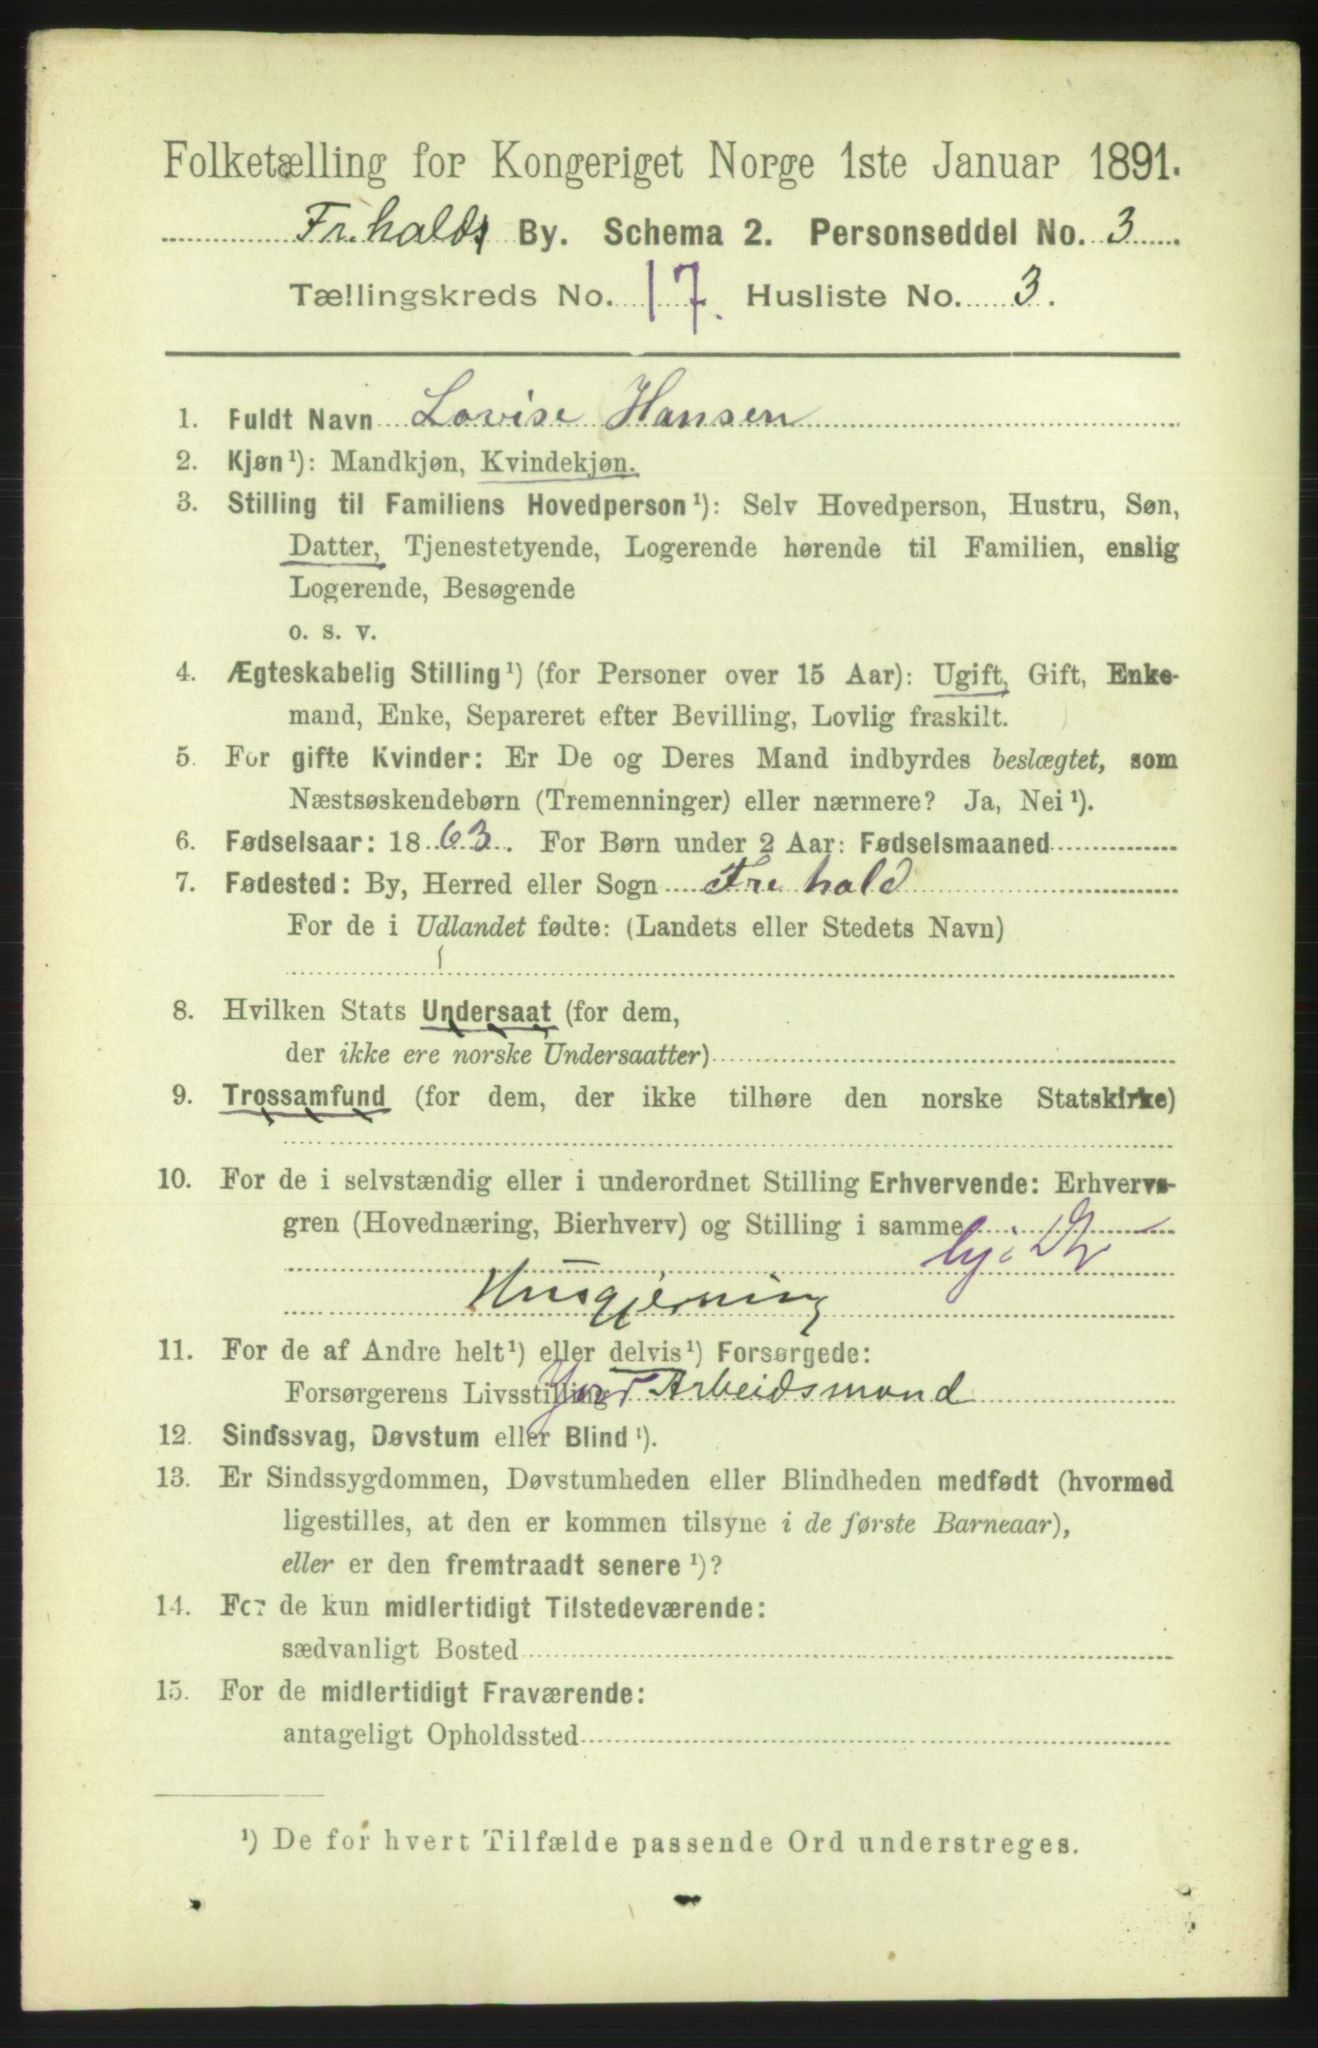 Folketælling for Kongeriget Norge 1ste Januar 1891.
Fr.halds By. Schema 2. Personseddel No. 3
Tællingskreds No. 17. Husliste No. 3.
1. Fuldt Navn Lovise Hansen
2. Kjøn¹): Mandkjøn, Kvindekjøn.
3. Stilling til Familiens Hovedperson¹): Selv Hovedperson, Hustru, Søn,
Datter, Tjenestetyende, Logerende hørende til Familien, enslig
Logerende, Besøgende
o. s. v.
4. Ægteskabelig Stilling¹) (for Personer over 15 Aar): Ugift, Gift, Enke-
mand, Enke, Separeret efter Bevilling, Lovlig fraskilt.
5. For gifte Kvinder: Er De og Deres Mand indbyrdes beslægtet, som
Næstsøskendebørn (Tremenninger) eller nærmere? Ja, Nei¹).
6. Fødselsaar: 1863. For Børn under 2 Aar: Fødselsmaaned
7. Fødested: By, Herred eller Sogn Fre hald
For de i Udlandet fødte: (Landets eller Stedets Navn)
8. Hvilken Stats Undersaat (for dem,
der ikke ere norske Undersaatter)
9. Trossamfund (for dem, der ikke tilhøre den norske Statskirke)
10. For de i selvstændig eller i underordnet Stilling Erhvervende: Erhvervs-
gren (Hovednæring, Bierhverv) og Stilling i samme
Husgjerning
11. For de af Andre helt¹) eller delvis¹) Forsørgede:
Forsørgerens Livsstilling Arbeidsmand
12. Sindssvag, Døvstum eller Blind¹).
13. Er Sindssygdommen, Døvstumheden eller Blindheden medfødt (hvormed
ligestilles, at den er kommen tilsyne i de første Barneaar),
eller er den fremtraadt senere¹)?
14. For de kun midlertidigt Tilstedeværende:
sædvanligt Bosted
15. For de midlertidigt Fraværende:
antageligt Opholdssted
¹) De for hvert Tilfælde passende Ord understreges.